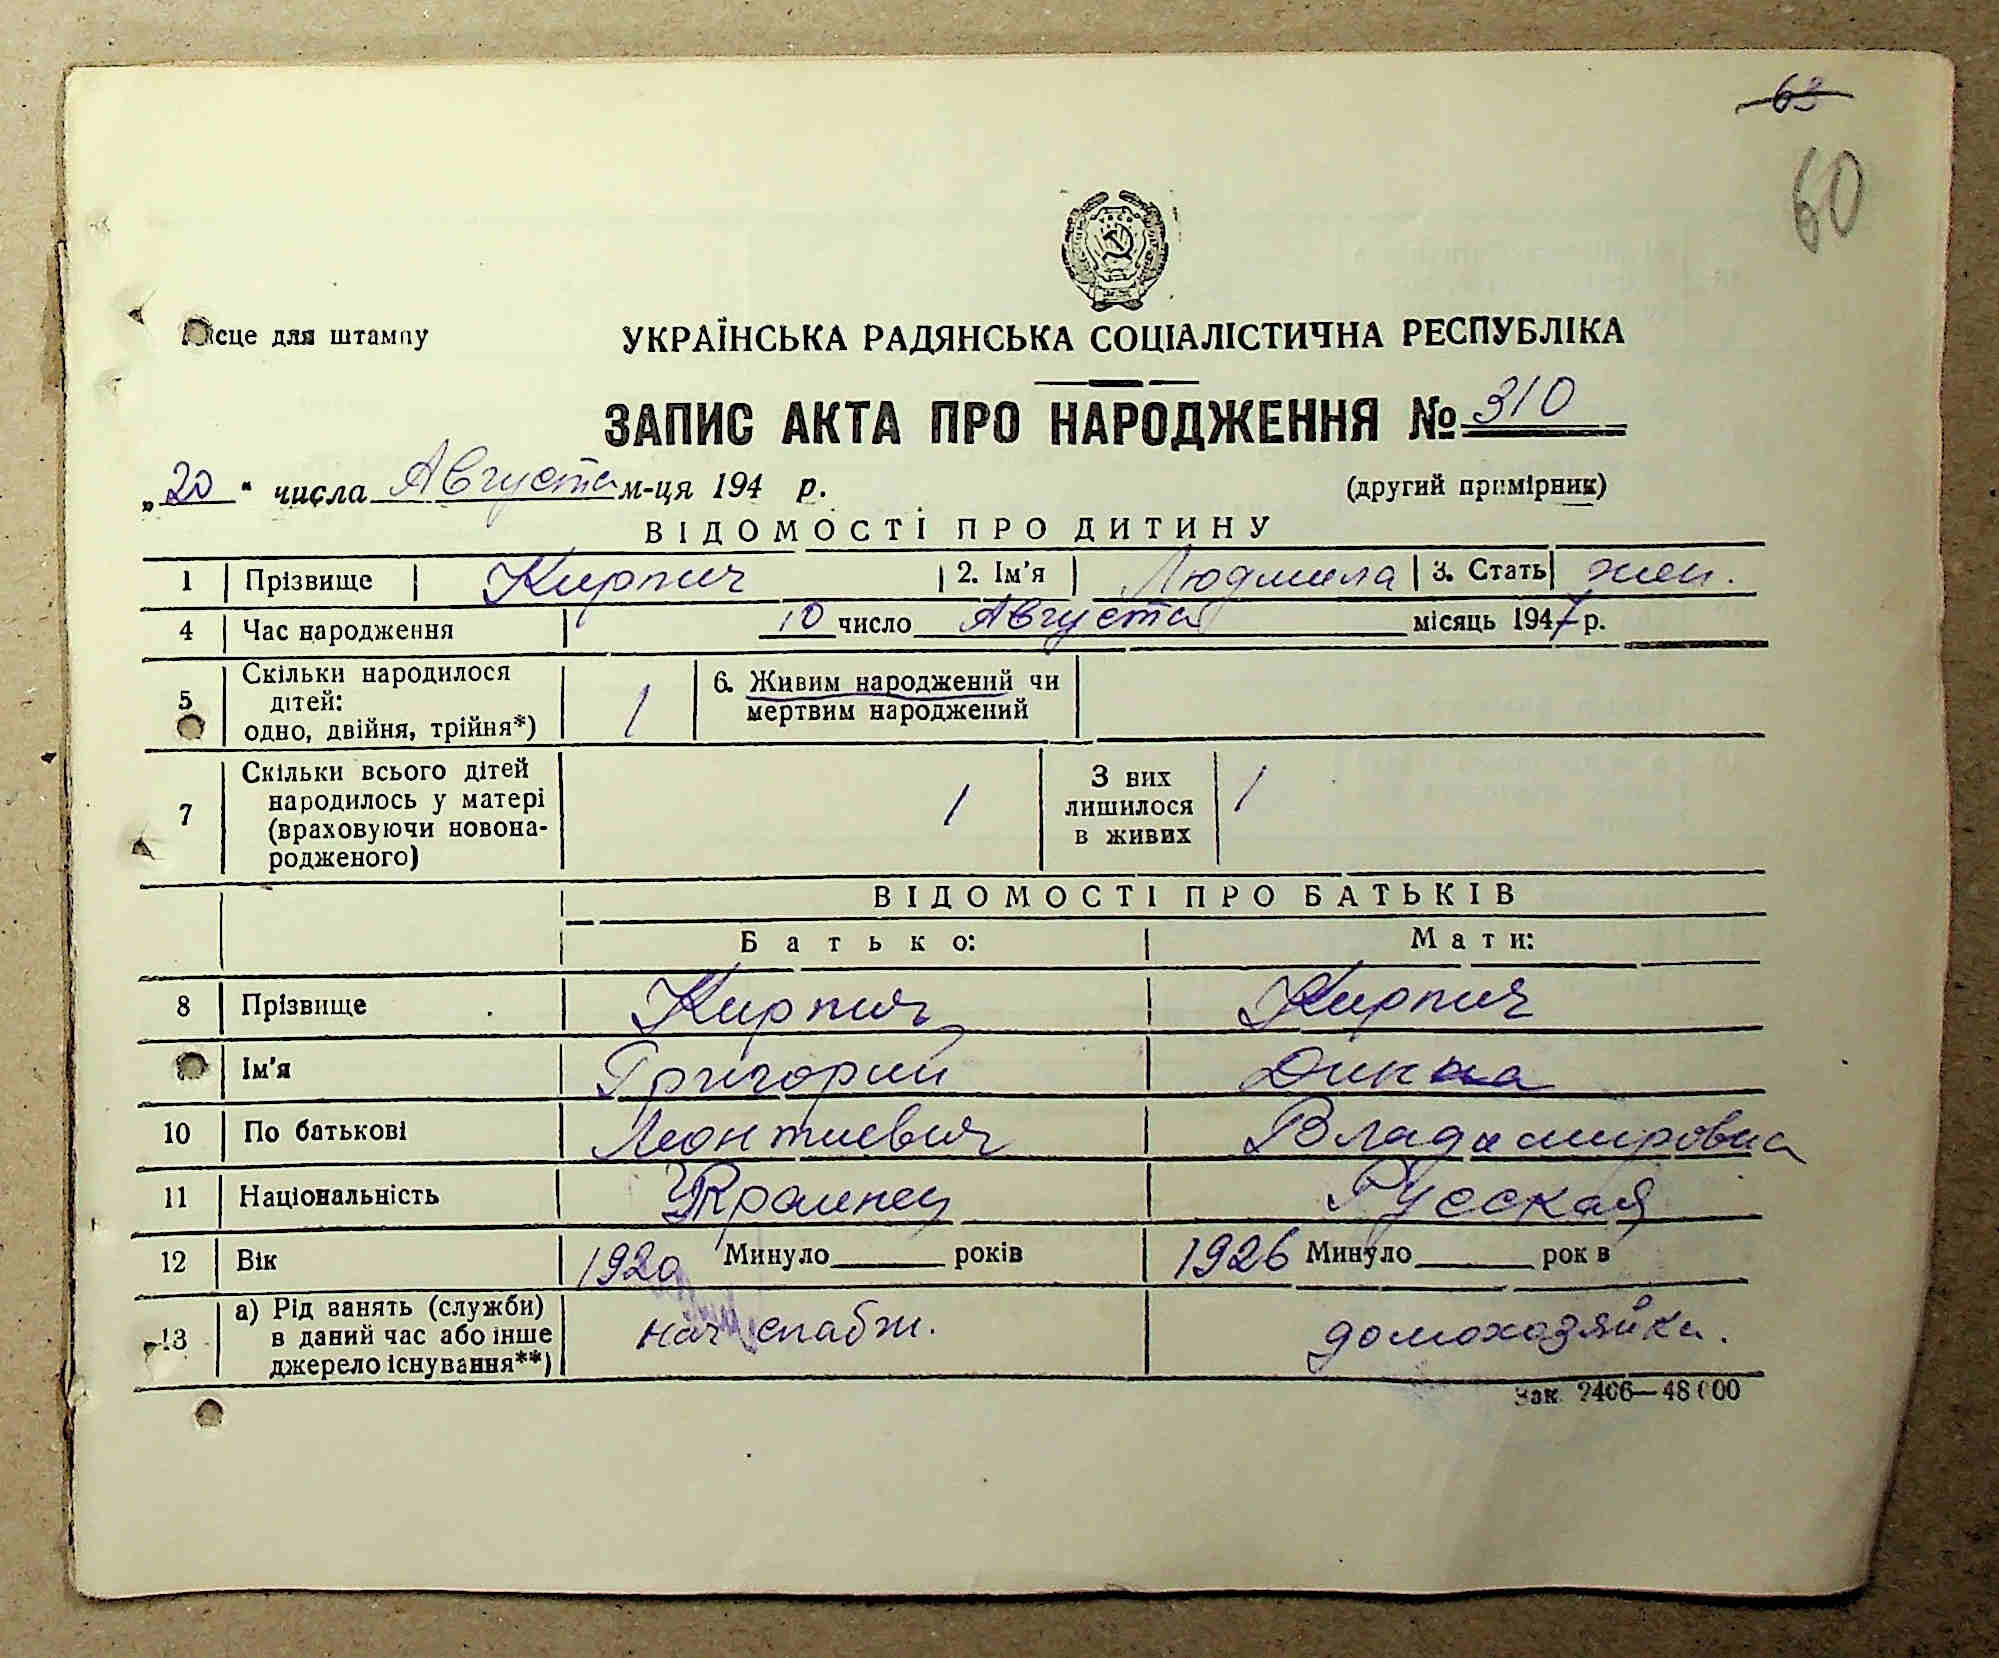 63
60
Місце для штампу
УКРАЇНСЬКА РАДЯНСЬКА СОЦІАЛІСТИЧНА РЕСПУБЛІКА
ЗАПИС АКТА ПРО НАРОДЖЕННЯ № 310
„20“ числа Августа м-ця 194 р. (другий примірник)
ВІДОМОСТІ ПРО ДИТИНУ
1 Прізвище Кирпич 2. Ім'я Людмила 3. Стать жен.
4 Час народження 10 число Августа місяць 1947 р.
5 Скільки народилося дітей: одно, двійня, трійня*) 1 6. Живим народжений чи мертвим народжений
7 Скільки всього дітей народилось у матері (враховуючи новонародженого) 1 З них лишилося в живих 1
ВІДОМОСТІ ПРО БАТЬКІВ
Батько: Мати:
8 Прізвище Кирпич Кирпич
Ім'я Григорий Дина
10 По батькові Леонтиевич Владимировна
11 Національність Украинец Русская
12 Вік 1920 Минуло років 1926 Минуло рок в
13 а) Рід занять (служби) в даний час або інше джерело існування**) нач снабж. домохозяйка.
Зак. 2406—48000